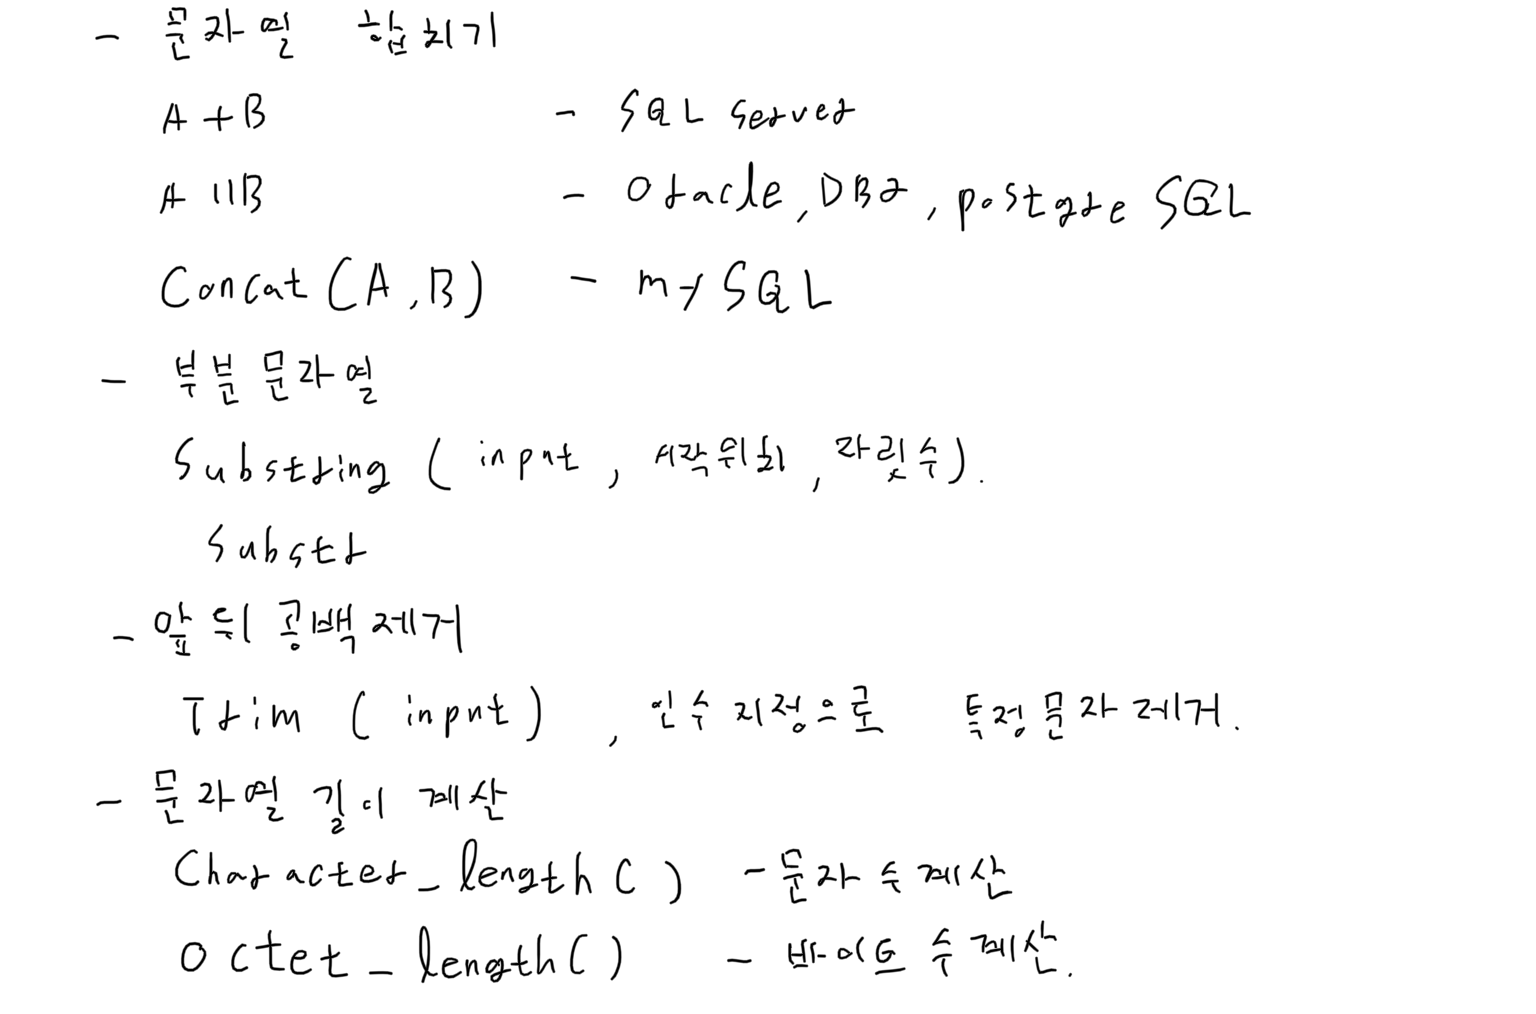 - 문자열 합치기
A + B - SQL Server
A || B - Oracle, DB2, postgre SQL
Concat (A, B) - mySQL
- 부분 문자열
Substring ( input, 시작위치, 자릿수).
Substr
- 앞뒤 공백 제거
Trim ( input ), 인수 지정으로 특정 문자 제거.
- 문자열 길이 계산
Character_length ( ) - 문자 수 계산
Octet_length ( ) - 바이트 수 계산.